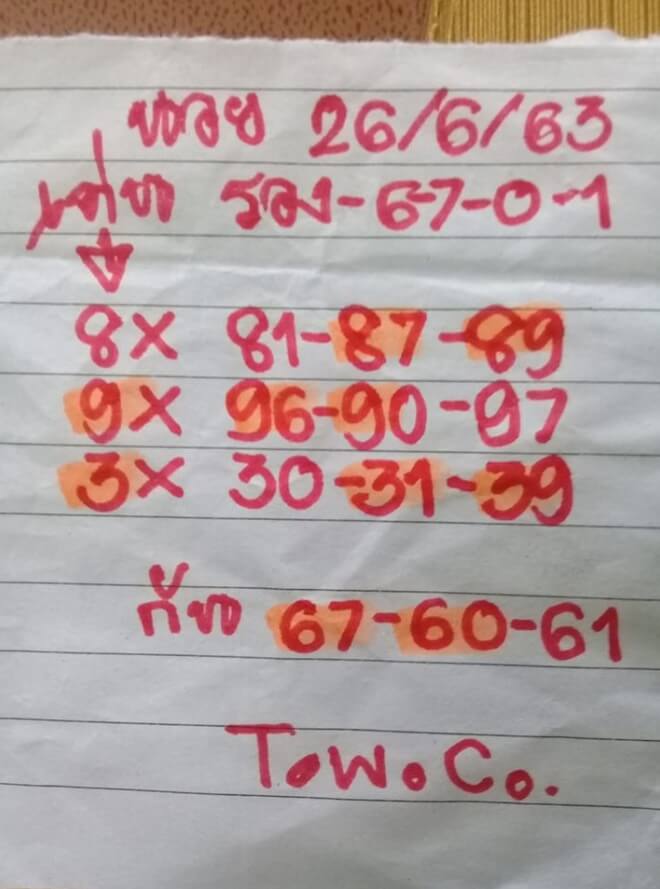 หวย 26/6/63
เด่น รอง-67-0-1
8x 81-87-89
9x 96-90-97
3x 30-31-39
กัน 67-60-61
T.W.Co.